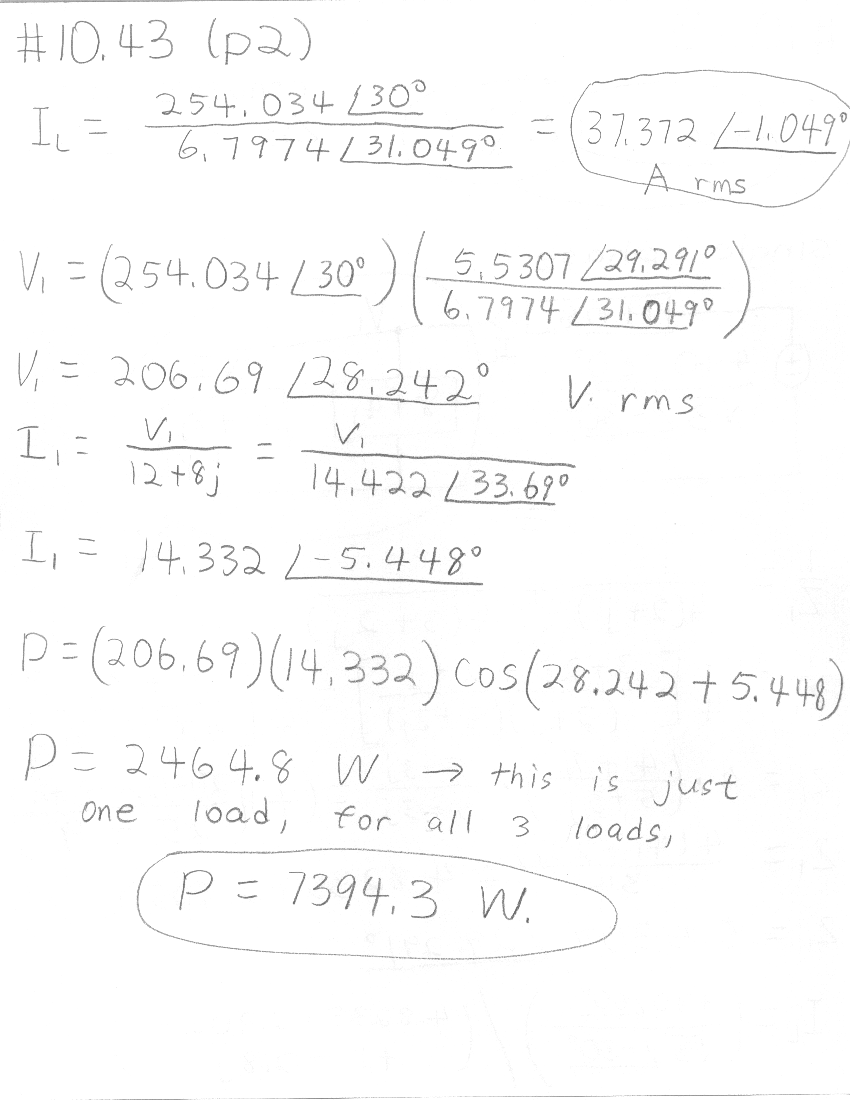 #10.43 (p2)
I_L = 254.034 ∠30° / 6.7974 ∠31.049° = 37.372 ∠-1.049°
A rms
V₁ = (254.034 ∠30°)(5.5307 ∠29.291° / 6.7974 ∠31.049°)
V₁ = 206.69 ∠28.242° V. rms
I₁ = V₁ / 12+8j = V₁ / 14.422 ∠33.69°
I₁ = 14.332 ∠-5.448°
P = (206.69)(14.332) cos(28.242 + 5.448)
P = 2464.8 W → this is just
one load, for all 3 loads,
P = 7394.3 W.